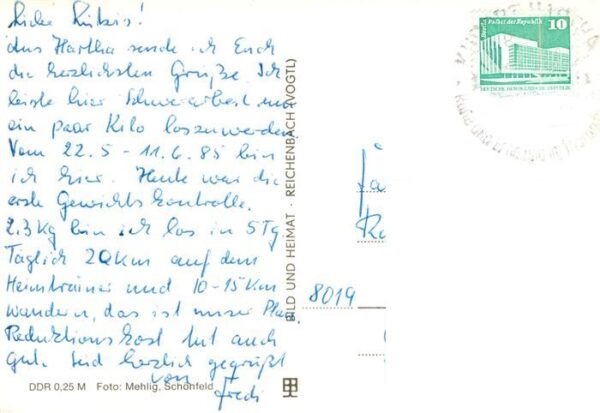 Liebe
aus Hartha sende ich Euch
die herzlichsten Grüße. Ich
leiste hier Schwerarbeit um
ein paar Kilo loszuwerden.
Vom 22.5 - 11.6.85 bin
ich hier. Heute war die
erste Gewichtskontrolle.
2.3 Kg bin ich los in 5 Tg.
Täglich 20 Km auf dem
Heimtrainer und 10-15 Km
wandern, das ist unser Plan.
Reduktionskost tut auch
gut. Seid herzlich gegrüßt
von Fredi
DDR 0,25 M Foto: Mehlig, Schönfeld
BILD UND HEIMAT · REICHENBACH (VOGTL)
Berlin Palast der Republik
10
DEUTSCHE DEMOKRATISCHE REPUBLIK
8019